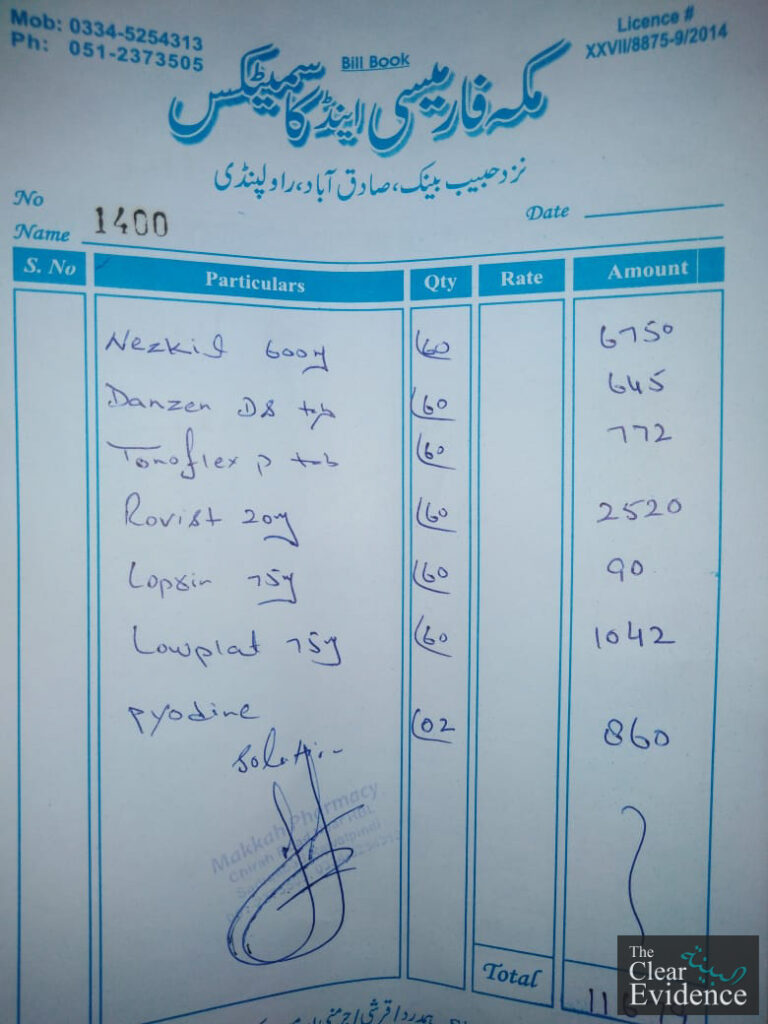 Mob: 0334-5254313
Ph: 051-2373505
Bill Book
Licence #
XXVII/8875-9/2014
مکہ فارمیسی اینڈ کاسمیٹکس
نزد حبیب بینک، صادق آباد، راولپنڈی
No 1400
Date
Name
S. No Particulars Qty Rate Amount
Nezkil 600mg 60 6750
Danzen DS tab 60 645
Tonoflex p tab 60 772
Rovist 20mg 60 2520
Loprin 75mg 60 90
Lowplat 75mg 60 1042
Pyodine 02 860
Solution
Makkah Pharmacy
Total
The
Clear البينة
Evidence